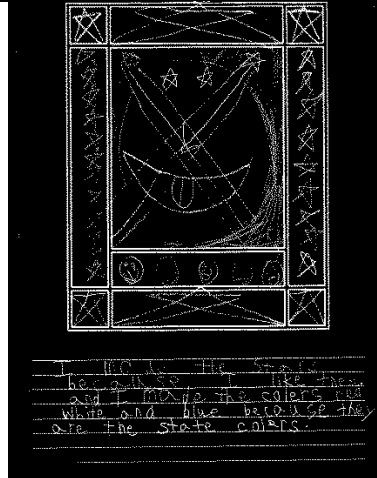 I the stars
I like
and I made the colers red
white and blue because they
are the state colers.